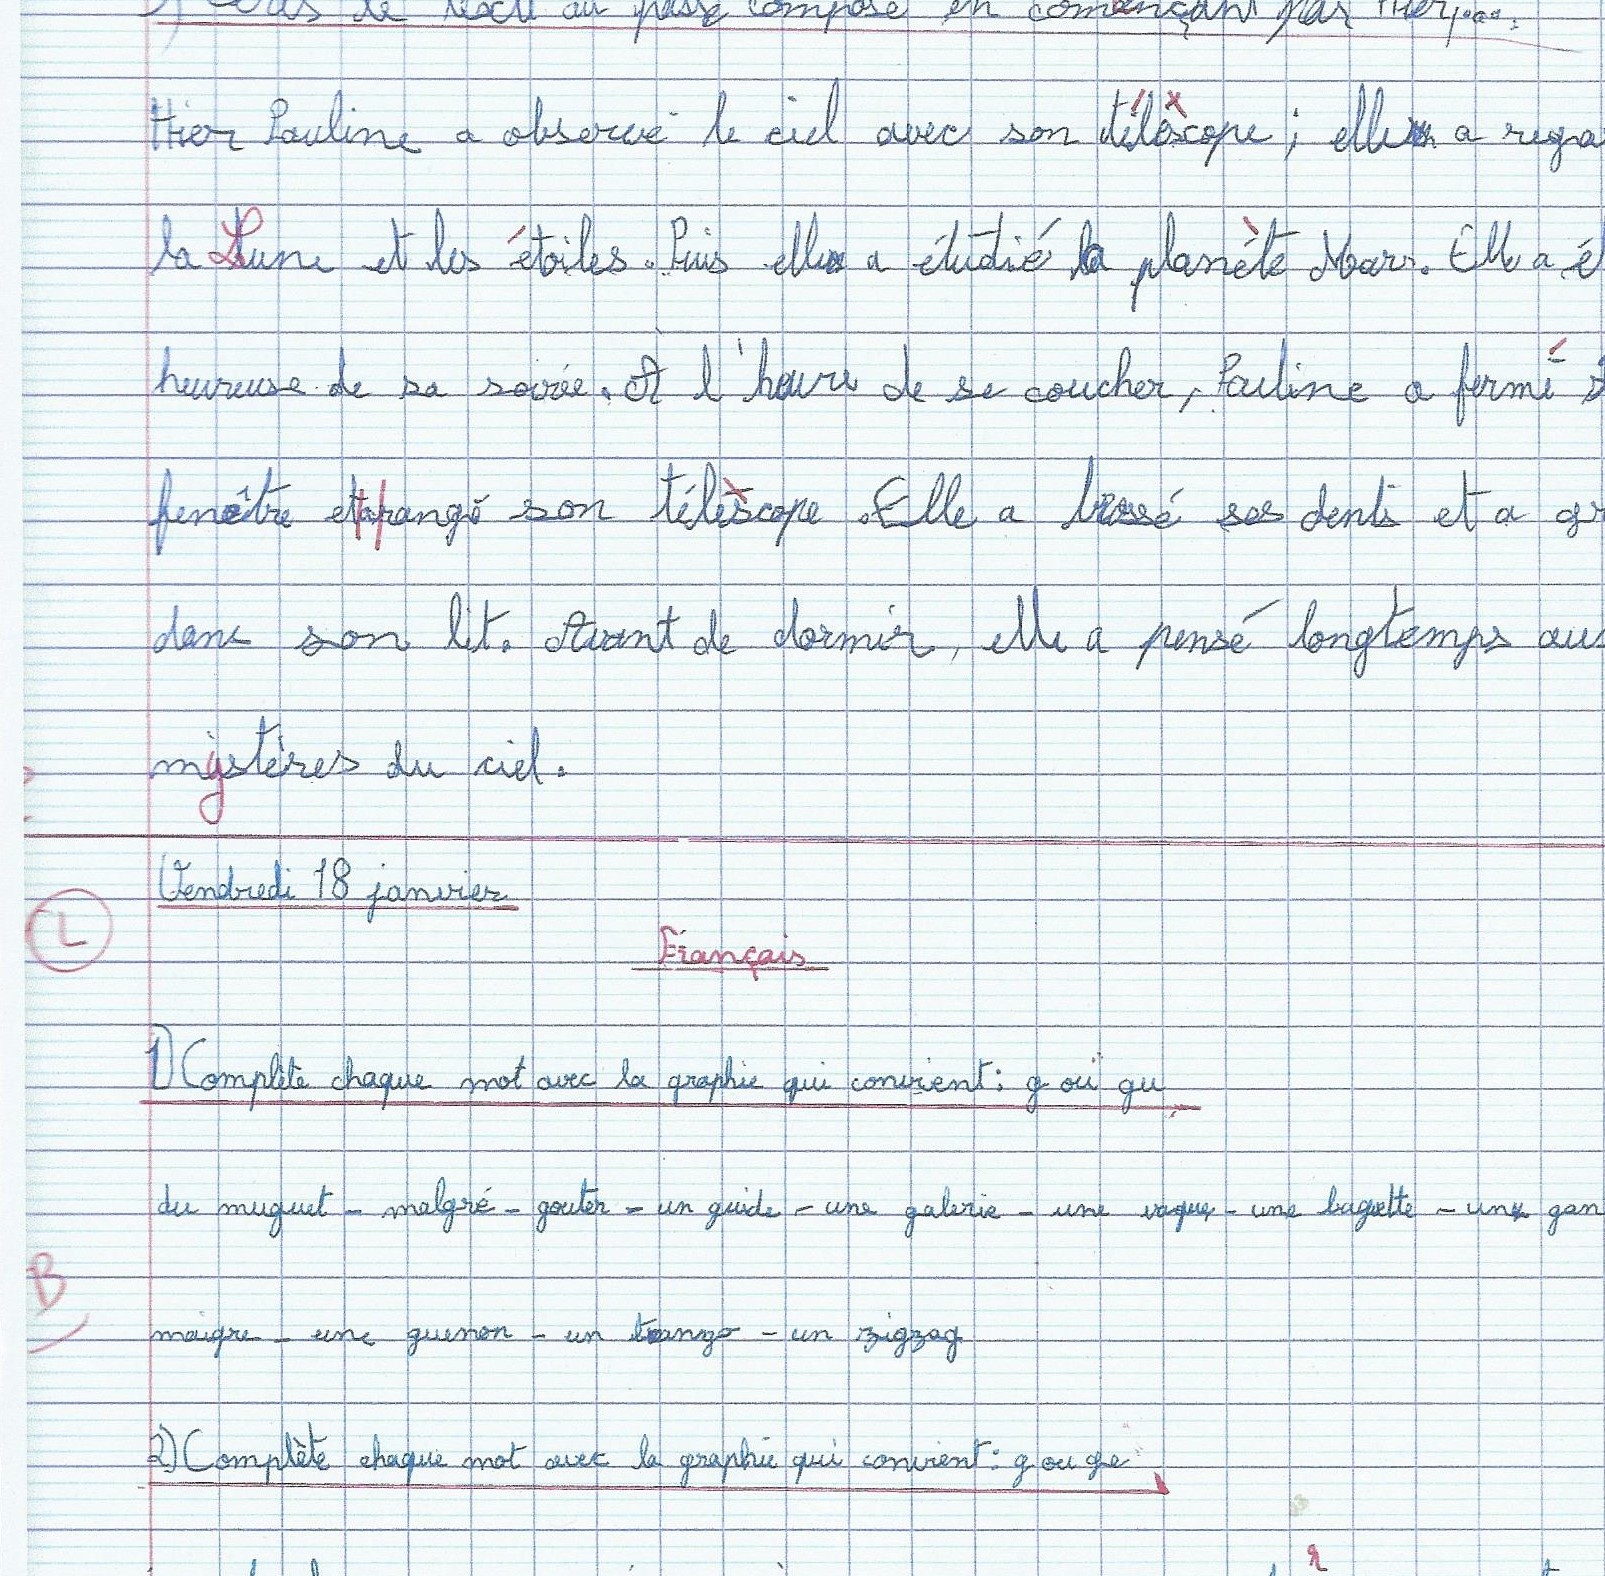 texte au passé composé en començant par Hier,...
Hier Pauline a observé le ciel avec son téléscope ; elle a rega
la Lune et les étoiles. Puis elle a étudié la planète Mars. Elle a é
heureuse de sa soirée. A l'heure de se coucher, Pauline a fermé s
fenêtre et a rangé son téléscope. Elle a brossé ses dents et a gr
dans son lit. Avant de dormir, elle a pensé longtemps aux
mystères du ciel.
Vendredi 18 janvier
L
Français
1) Complète chaque mot avec la graphie qui convient : g ou gu
du muguet - malgré - gouter - un guide - une galerie - une vague - une baguette - un gan
B
maigre - une guenon - un - un zigzag
2) Complète chaque mot avec la graphie qui convient : g ou ge